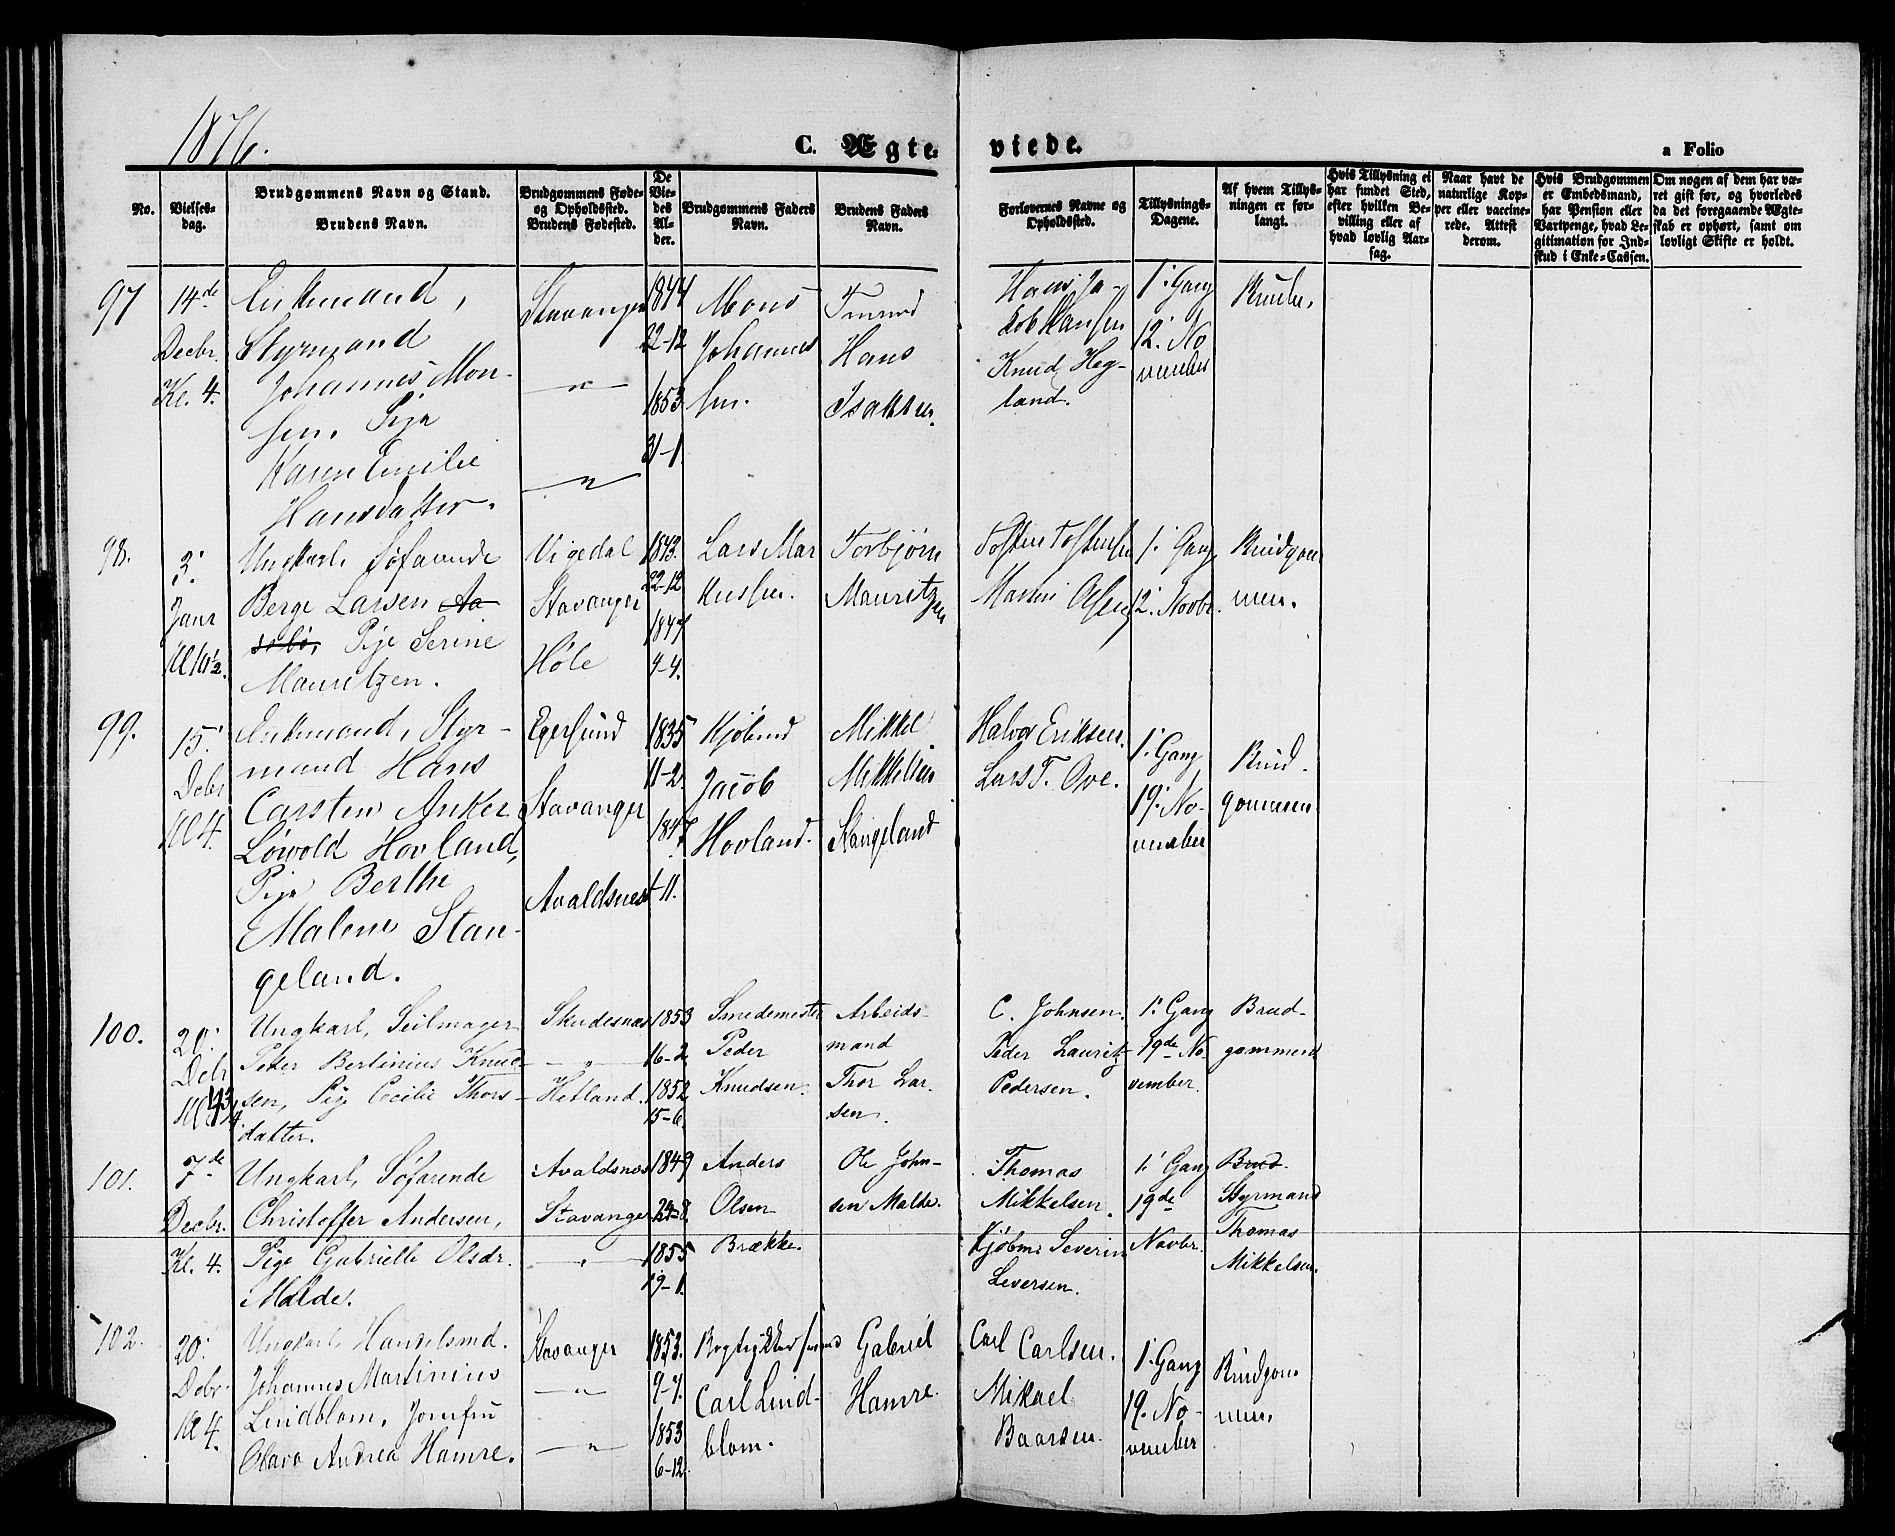 1876.
C. Ægte-
viede.
a Folio
No.
Vielses-
dag.
Brudgommens Navn og Stand.
Brudens Navn.
Brudgommens Føde-
og Opholdssted.
Brudens Fødested.
De
Vie-
des
Al-
der.
Brudgommens Faders
Navn.
Brudens Faders
Navn.
Forlovernes Navne og
Opholdssted.
Tillysnings-
Dagene.
Af hvem Tillys-
ningen er for-
langt.
Hvis Tillysning ei
har fundet Sted,
efter hvilken Be-
villing eller af
hvad lovlig Aar-
sag.
Naar havt de
naturlige Kop-
per eller vaccine-
rede. Attest
derom.
Hvis Brudgommen
er Embedsmand,
har Pension eller
Vartpenge, hvad Le-
gitimation for Ind-
skud i Enke-Cassen.
Om nogen af dem har væ-
ret gift før, og hvorledes
da det foregaaende Ægte-
skab er ophørt, samt om
lovligt Skifte er holdt.
97
14de
Decbr.
Kl. 4.
Enkemand,
Styrmand
Johannes Mon-
sen. Pige
Karen Emilie
Hansdatter.
Stavanger
"
"
1844
22-12
1853
31-1
Mons
Johannes
sen.
Hans
Isaksen.
Hans Ja-
kob Hansen
Knud Heg-
land.
1. Gang
12. No
vember
98.
3.
Janr
Kl 10 1/2.
Ungkarl, Søfarende
Berge Larsen Aa-
sebø, Pige Serine
Mauritzen.
Vigedal
Stavanger
Høle
1843.
22-12
1847
4-4.
Lars Mar
kussen.
Torbjørn
Mauritz
sen
Tosten Tostensen
Martin Olsen
1. Gang
12. Novbr.
Brudgom
men.
99.
15.
Debr
Kl 4.
Enkemand, Styr-
mand Hans
Carsten Anker
Løwold Hovland,
Pige Berthe
Malene Stan-
geland.
Egersund
Stavanger
Avaldsnes
1835
11-2
1847
1-11.
Kjøbmd
Jacob
Hovland.
Mikkel
Mikkelsen
Stangeland
Halvor Eriksen.
Lars T. Ove.
1. Gang
19. No-
vember
Brud-
gommen
100.
20.
Debr
Kl
Ungkarl, Seilmager
Peter Bertinius Knud-
sen, Pige Cecilie Thors-
datter.
Skudesnæs
"
Hetland.
1853
16-2
1852
15-6.
Smedemester
Peder
Knudsen.
Arbeids-
mand
Thor Lar-
sen.
C. Johnsen.
Peder Lauritz
Pedersen.
1. Gang
19de No-
vember.
Brud-
gommen
101.
7de
Decbr.
Kl. 4.
Ungkarl, Søfarende
Christoffer Andersen,
Pige Gabrielle Olsdr.
Malde.
Avaldsnæs
Stavanger
"
1849
24-8
1855
19-1.
Anders
Olsen
Brække.
Ole John-
sen Malde.
Thomas
Mikkelsen.
Kjøbm. Severin
Seversen.
1. Gang
19de
Novbr.
Brud-
Styrmand
Thomas
Mikkelsen.
102.
20.
Debr.
Kl 4.
Ungkarl, Handelsmd.
Johannes Martinius
Lindblom, Jomfru
Olava Andrea Hamre.
Stavanger
"
"
1853.
9-7.
1853
6-12
Bogtrykker
Carl Lind-
blom.
Gabriel
Hamre.
Carl Carlsen.
Mikael
Baarsen.
1. Gang
19. No-
vember
Brudgom
men.